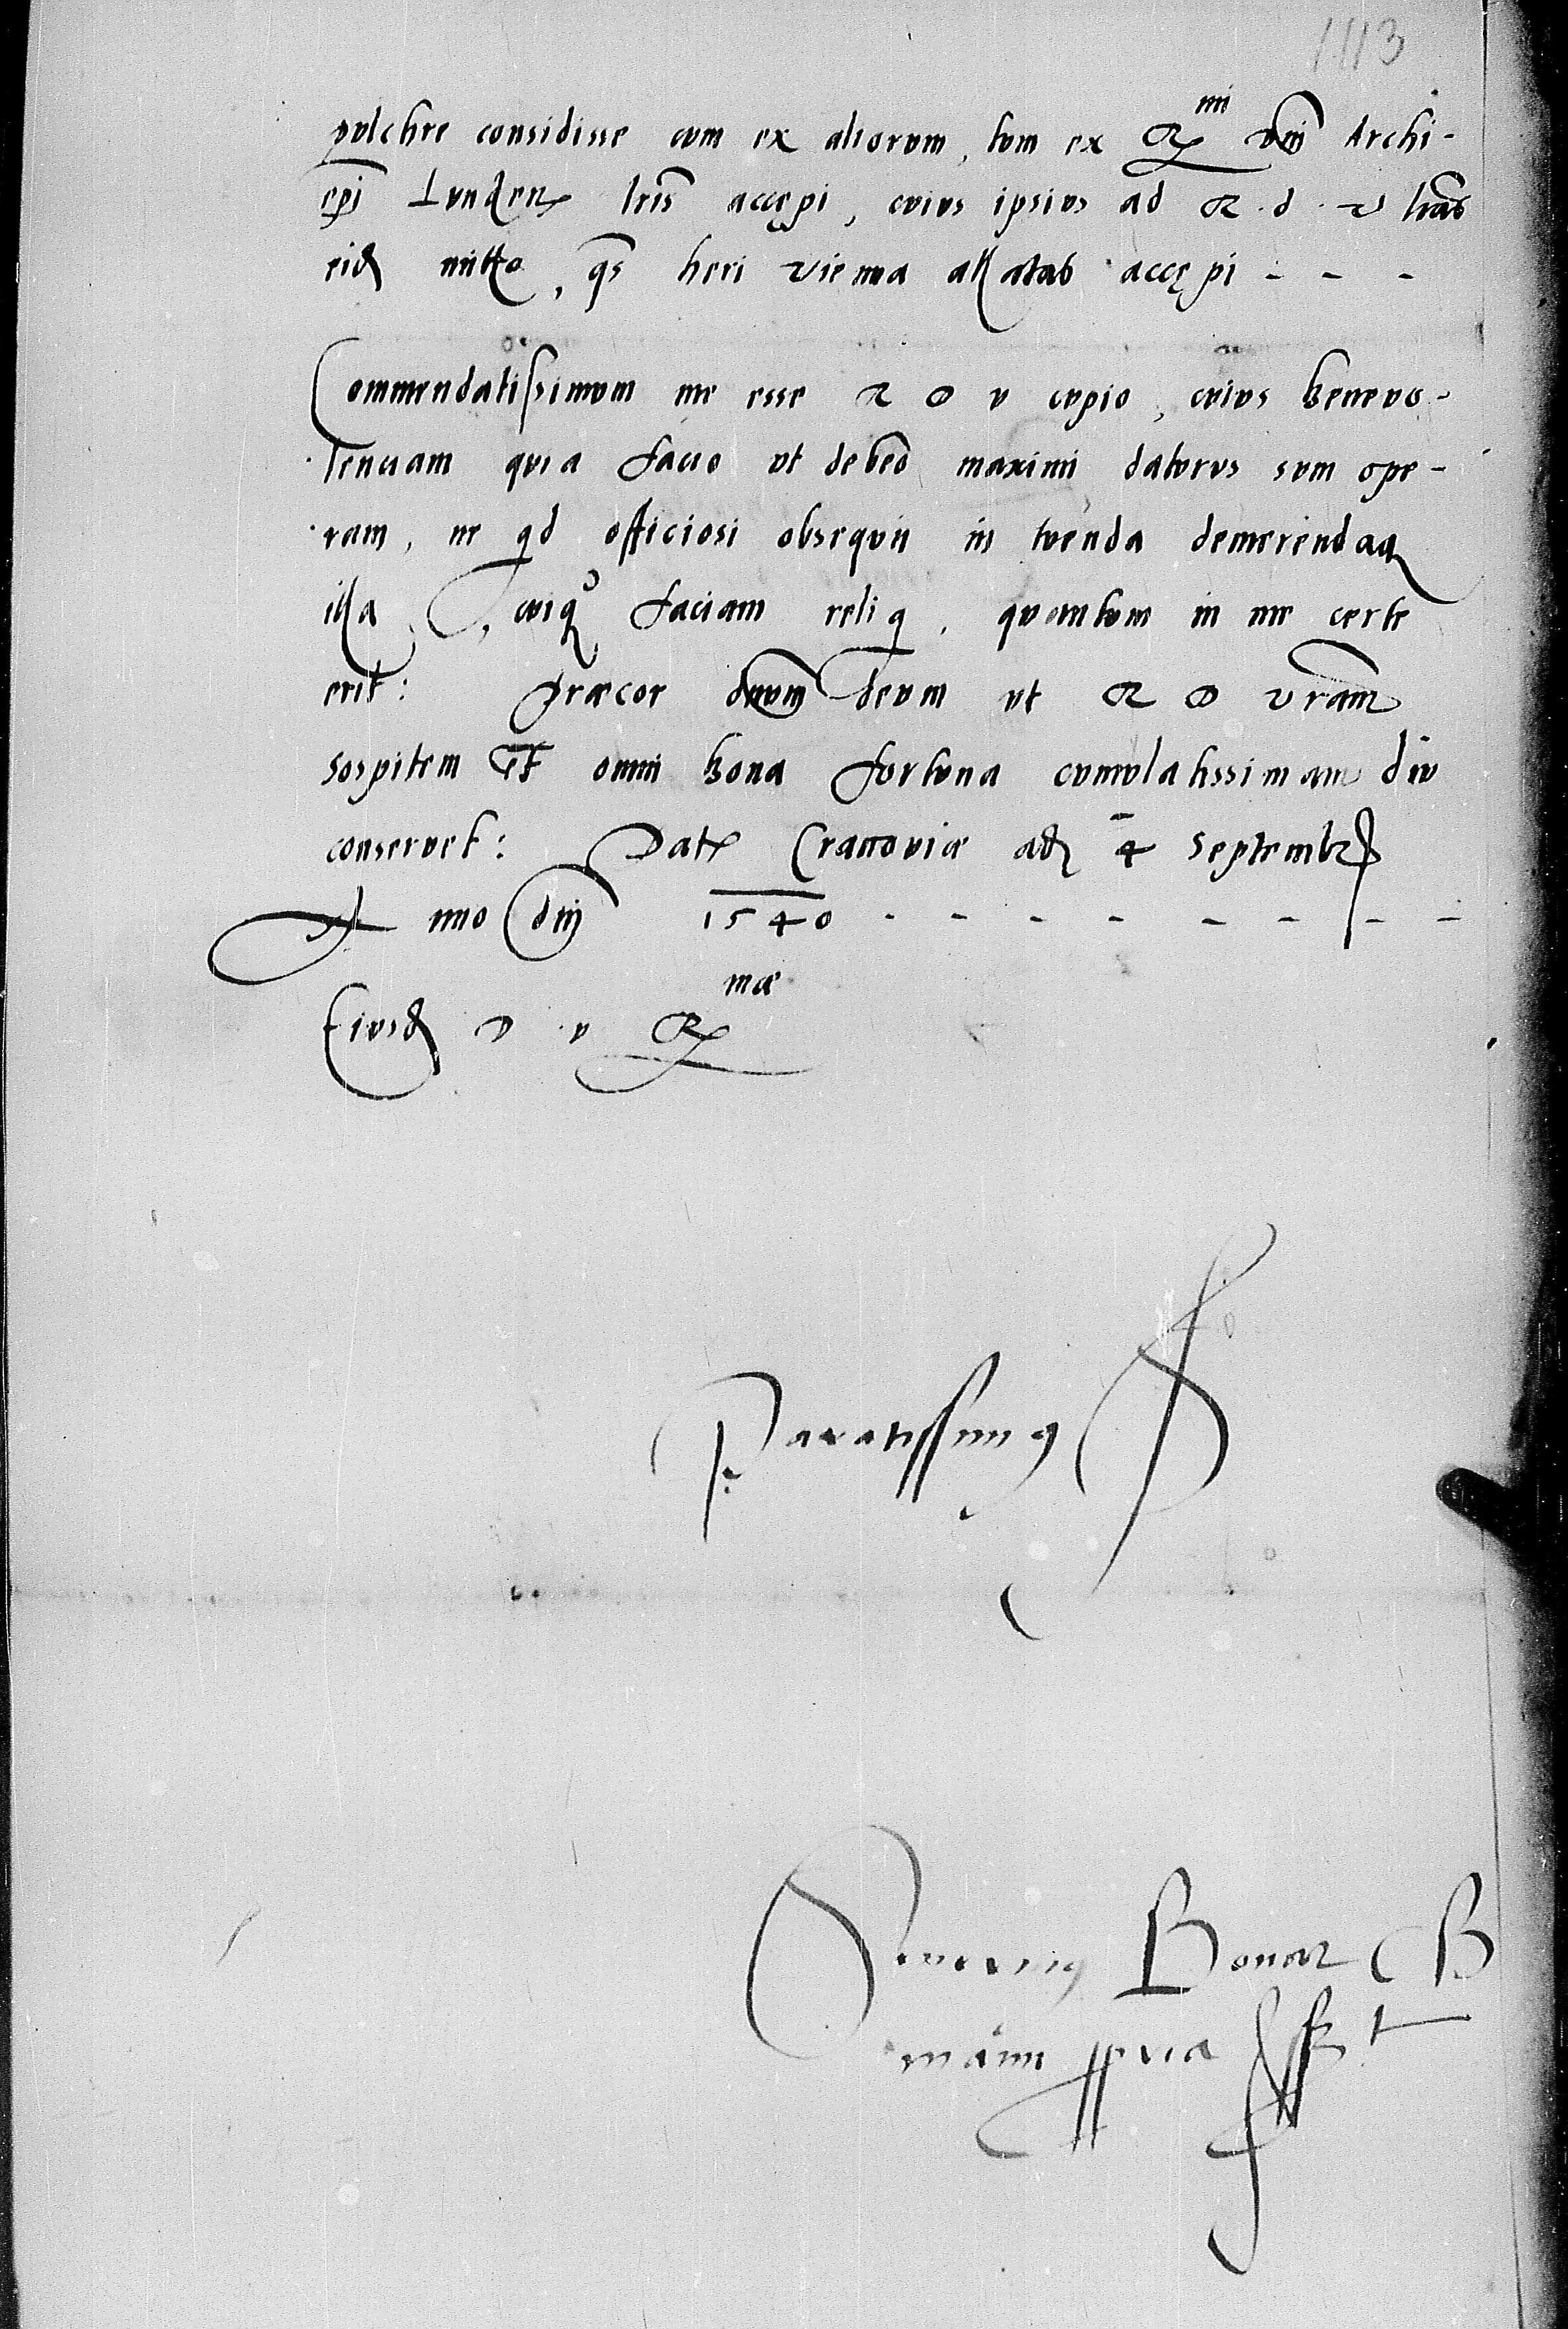 1113
pulchre considisse cum ex aliorum, tum ex R^mi dni Archi-
epi Lunden lris accępi, cuius ipsius ad R. d. v lras
eid mitto, qs heri vienna allatas accępi - - -
Commendatissimum me esse R D v cupio, cuius benevo-
lenciam quia facio ut debeo maximi daturus sum ope-
ram, ne qd officiosi obsequii in tuenda demerendaq
illa, cuiq faciam reliq, quantum in me certe
erit: Præcor dnum deum ut R D vram
sospitem et omni bona fortuna cumulatissimam diu
conservet: Dat Cracoviæ ad 4 Septembr
Anno dni 1540 - - - - - - - -
Eiusd D v R^mæ
Paratissimus
Severinus Bonar B
manu ppria sst